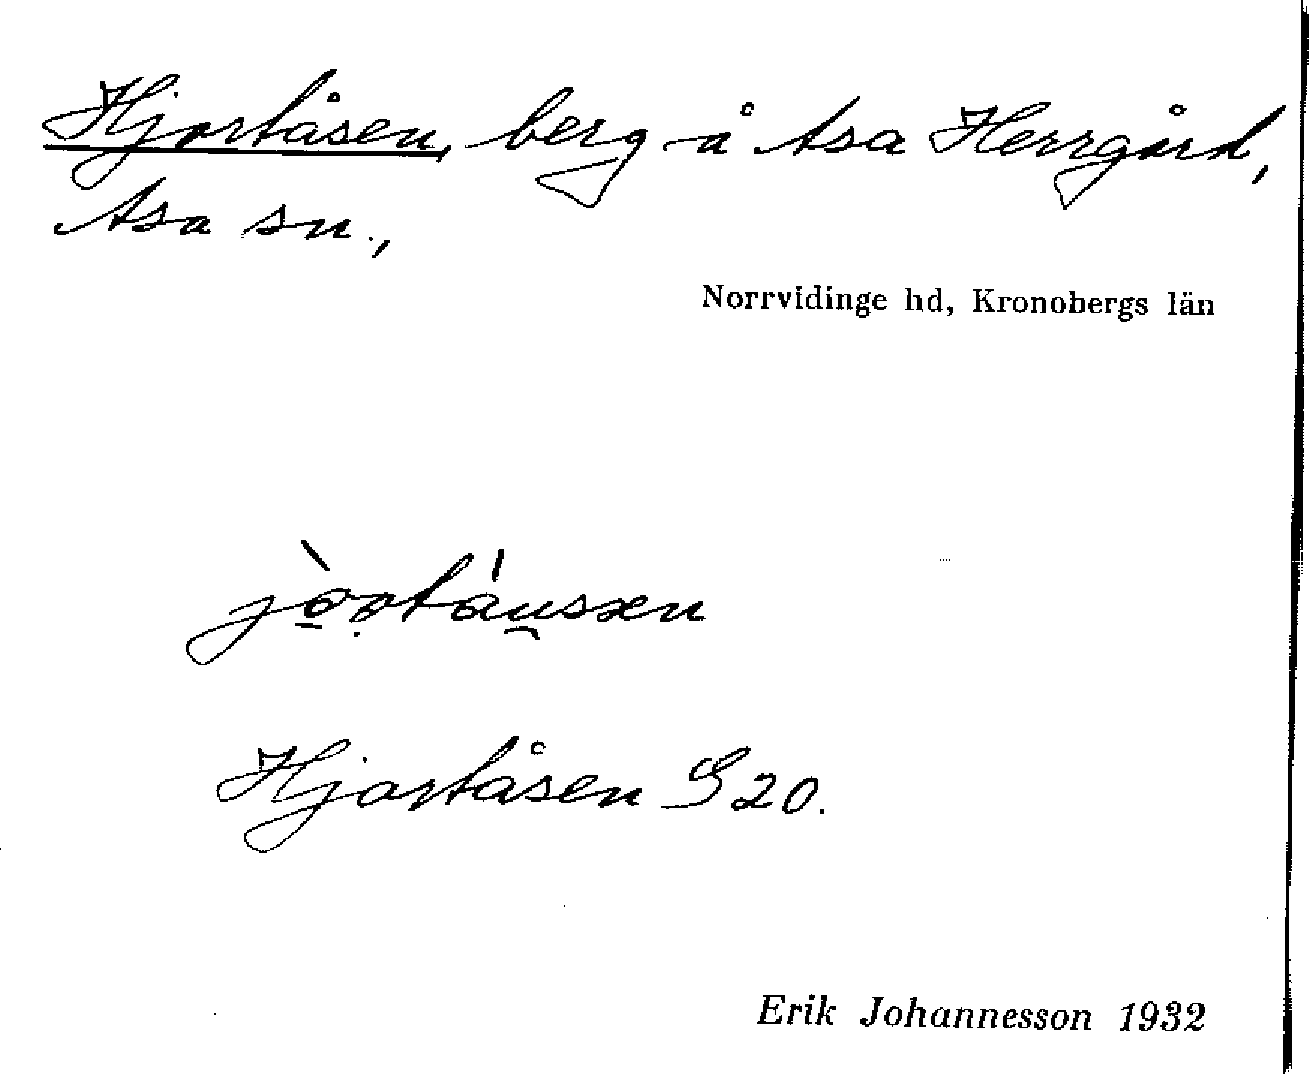 Hjortåsen, berg å Asa Herrgård,
Asa sn.,
Norrvidinge hd, Kronobergs län
Hjortåsen G 20.
Erik Johannesson 1932